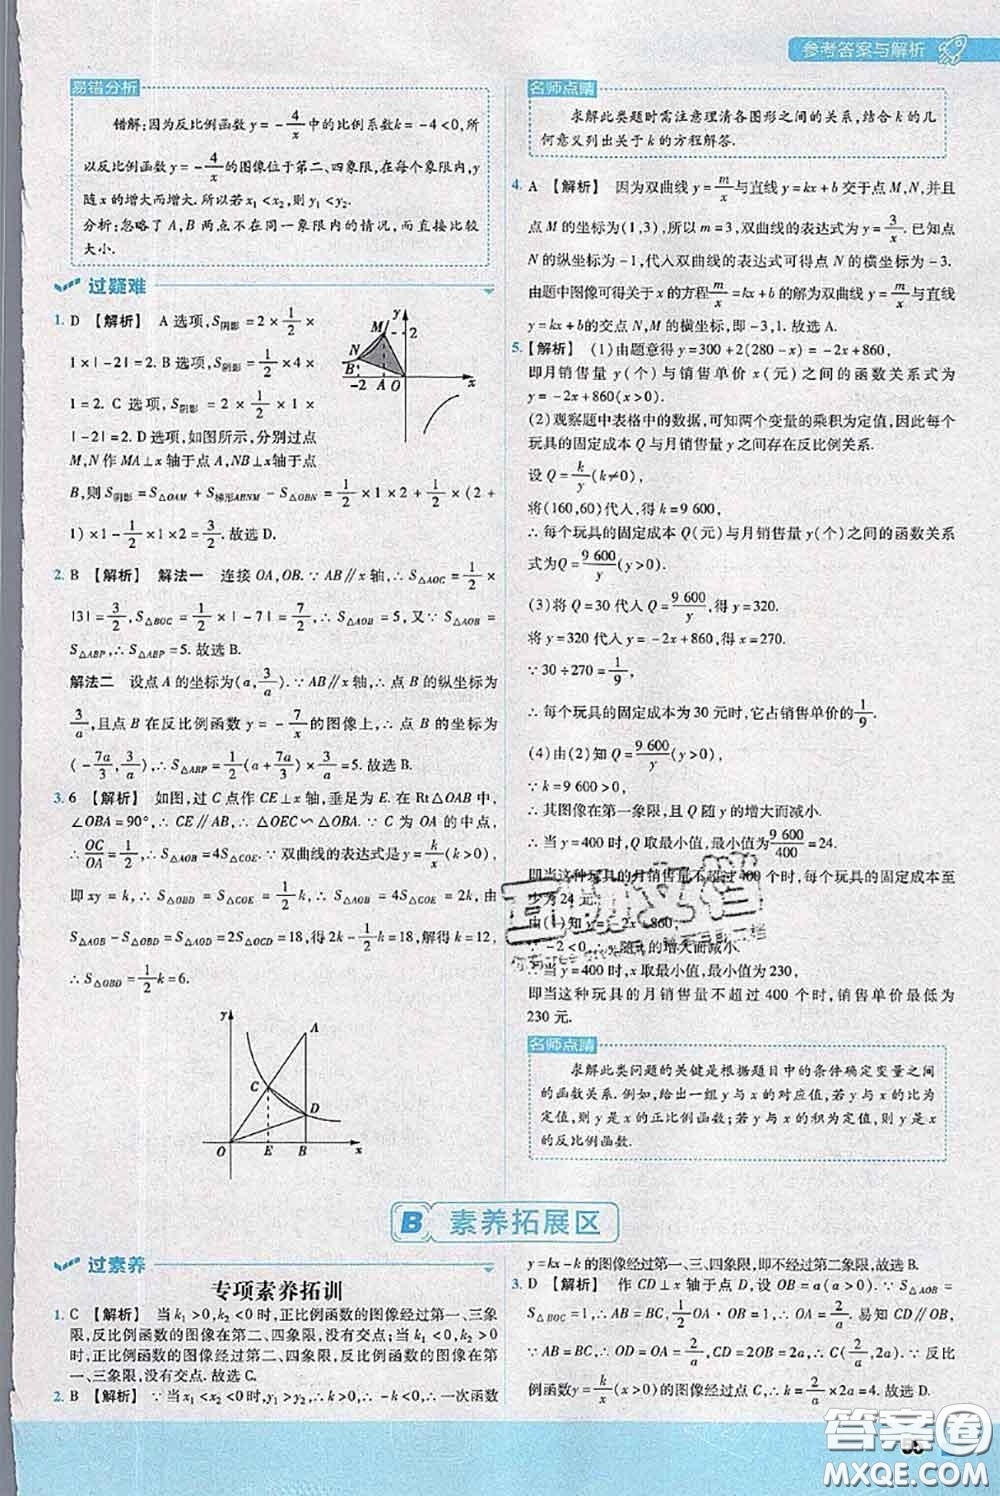 参考答案与解析
易错分析
错解:因为反比例函数y=-4/x中的比例系数k=-4<0,所
以反比例函数y=-4/x的图像位于第二、四象限,在每个象限内,y
随x的增大而增大.所以若x₁<x₂,则y₁<y₂.
分析:忽略了A,B两点不在同一象限内的情况,而直接比较
大小.
过疑难
1. D 【解析】 A选项,S阴影=2×1/2×
1×|-2|=2. B选项,S阴影=1/2×4×
1=2. C选项,S阴影=2×1/2×
|-2|=2. D选项,如图所示,分别过点
M,N作MA⊥x轴于点A,NB⊥x轴于点
B,则S阴影=S△OAM+S梯形ABNM-S△OBN=1/2×1×2+1/2×(2+
1)×1-1/2×1×2=3/2.故选D.
y
M
2
N
B
-2 A O
x
2. B 【解析】 解法一 连接OA,OB.∵AB∥x轴,∴S△AOC=1/2×
|3|=3/2,S△BOC=1/2×|-7|=7/2,∴S△AOB=5,又∵S△AOB=
S△ABP,∴S△ABP=5.故选B.
解法二 设点A的坐标为(a,3/a).∵AB∥x轴,∴点B的纵坐标为
3/a,且点B在反比例函数y=-7/x的图像上,∴点B的坐标为
(-7a/3,3/a),∴S△ABP=1/2(a+7a/3)×3/a=5.故选B.
3. 6 【解析】 如图,过C点作CE⊥x轴,垂足为E.在Rt△OAB中,
∠OBA=90°,∴CE∥AB,∴△OEC∽△OBA.∵C为OA的中点,
∴OC/OA=1/2,∴S△AOB=4S△COE.∵双曲线的表达式是y=k/x(k>0),
即xy=k,∴S△OBD=S△COE=1/2k,∴S△AOB=4S△COE=2k,由
S△AOB-S△OBD=S△AOD=2S△OCD=18,得2k-1/2k=18,解得k=12,
∴S△OBD=1/2k=6.
y
A
C
D
O E B x
名师点睛
求解此类题时需注意理清各图形之间的关系,结合k的几
何意义列出关于k的方程解答.
4. A 【解析】 因为双曲线y=m/x与直线y=kx+b交于点M,N,并且
点M的坐标为(1,3),所以m=3,双曲线的表达式为y=3/x.已知点
N的纵坐标为-1,代入双曲线的表达式可得点N的横坐标为-3.
由题中图像可得关于x的方程m/x=kx+b的解为双曲线与直线
y=kx+b的交点N,M的横坐标,即-3,1.故选A.
5.【解析】 (1)由题意得y=300+2(280-x)=-2x+860,
即月销售量y(个)与销售单价x(元)之间的函数关系式为
y=-2x+860(x>0).
(2)观察题中表格中的数据,可知两个变量的乘积为定值,因此每个
玩具的固定成本Q与月销售量y之间存在反比例关系.
设Q=k/y(k≠0),
将(160,60)代入,得k=9 600,
∴每个玩具的固定成本Q(元)与月销售量y(个)之间的函数关系
式为Q=9 600/y(y>0).
(3)将Q=30代入Q=9 600/y,得y=320.
将y=320代入y=-2x+860,得x=270.
∵30÷270=1/9,
∴每个玩具的固定成本为30元时,它占销售单价的1/9.
(4)由(2)知Q=9 600/y(y>0),
∵k=9 600>0,
∴其图像在第一象限,且Q随y的增大而减小.
∴当y=400时,Q取最小值,最小值为9 600/400=24.
即当这种玩具的月销售量不超过400个时,每个玩具的固定成本至
少为24元.
由(1)知y=-2x+860,
∵-2<0,∴y随x的增大而减小.
∴当y=400时,x取最小值,最小值为230,
即当这种玩具的月销售量不超过400个时,销售单价最低为
230元.
名师点睛
求解此类问题的关键是根据题目中的条件确定变量之间
的函数关系.例如,给出一组y与x的对应值,若y与x的比为
定值,则y是x的正比例函数;若y与x的积为定值,则y是x
的反比例函数.
B 素养拓展区
过素养
专项素养拓训
1. C 【解析】 当k₁>0,k₂<0时,正比例函数的图像经过第一、三象
限,反比例函数的图像在第二、四象限,没有交点;当k₁<0,k₂>0
时,正比例函数的图像经过第二、四象限,反比例函数的图像在第
一、三象限,没有交点.故选C.
2. B 【解析】 ∵当x₁<x₂<0时,y₁>y₂,∴k>0,∴-k<0,∴一次函数
y=kx-k的图像经过第一、三、四象限,即不经过第二象限,故选B.
3. D 【解析】 作CD⊥x轴于点D,设OB=a(a>0).∵S△AOB=
S△BOC=1,∴AB=BC,1/2OA·OB=1,∴OA=2/a.易知CD∥OA,
∵AB=BC,∴CD=OA=2/a,OD=2OB=2a,∴C(2a,2/a).∵反比
例函数y=k/x(x>0)的图像经过点C,∴k=2/a×2a=4.故选D.
答案圈
MXQE.COM